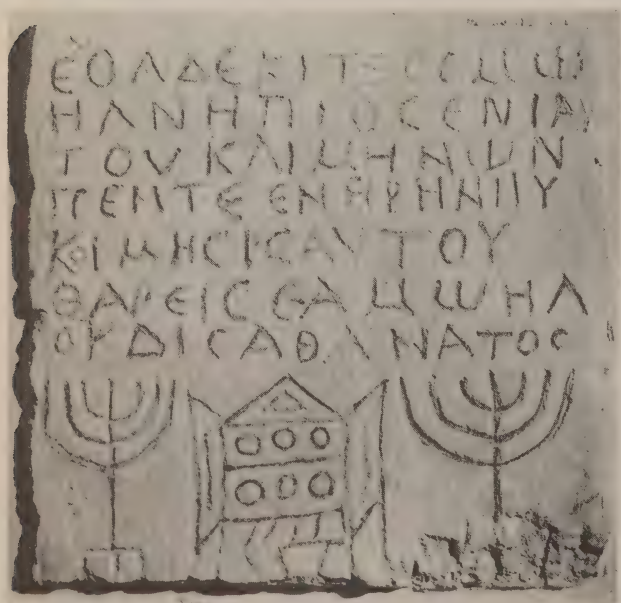 ΕΘΑΔΕΚΙΤΕCCΑΜΩ
ΗΛΝΗΠΙΟCΕΝΙΑΥ
ΤΟΥΚΑΙΜΗΝΩΝ
ΠΕΝΤΕΕΝΗΡΗΝΗΥ
ΚΟΙΜΗCΙCΑΥΤΟΥ
ΘΑΡΕΙCCΑΜΩΗΛ
ΟΥΔΙCΑΘΑΝΑΤΟC